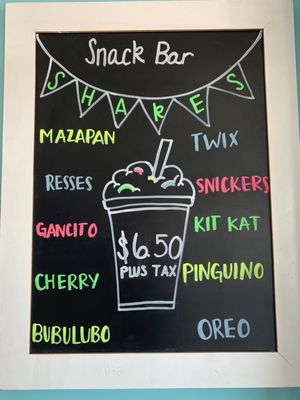 Snack Bar
SHAKES
MAZAPAN
TWIX
RESSES
SNICKERS
GANCITO
KIT KAT
$6.50
PLUS TAX
CHERRY
PINGUINO
BUBULUBO
OREO